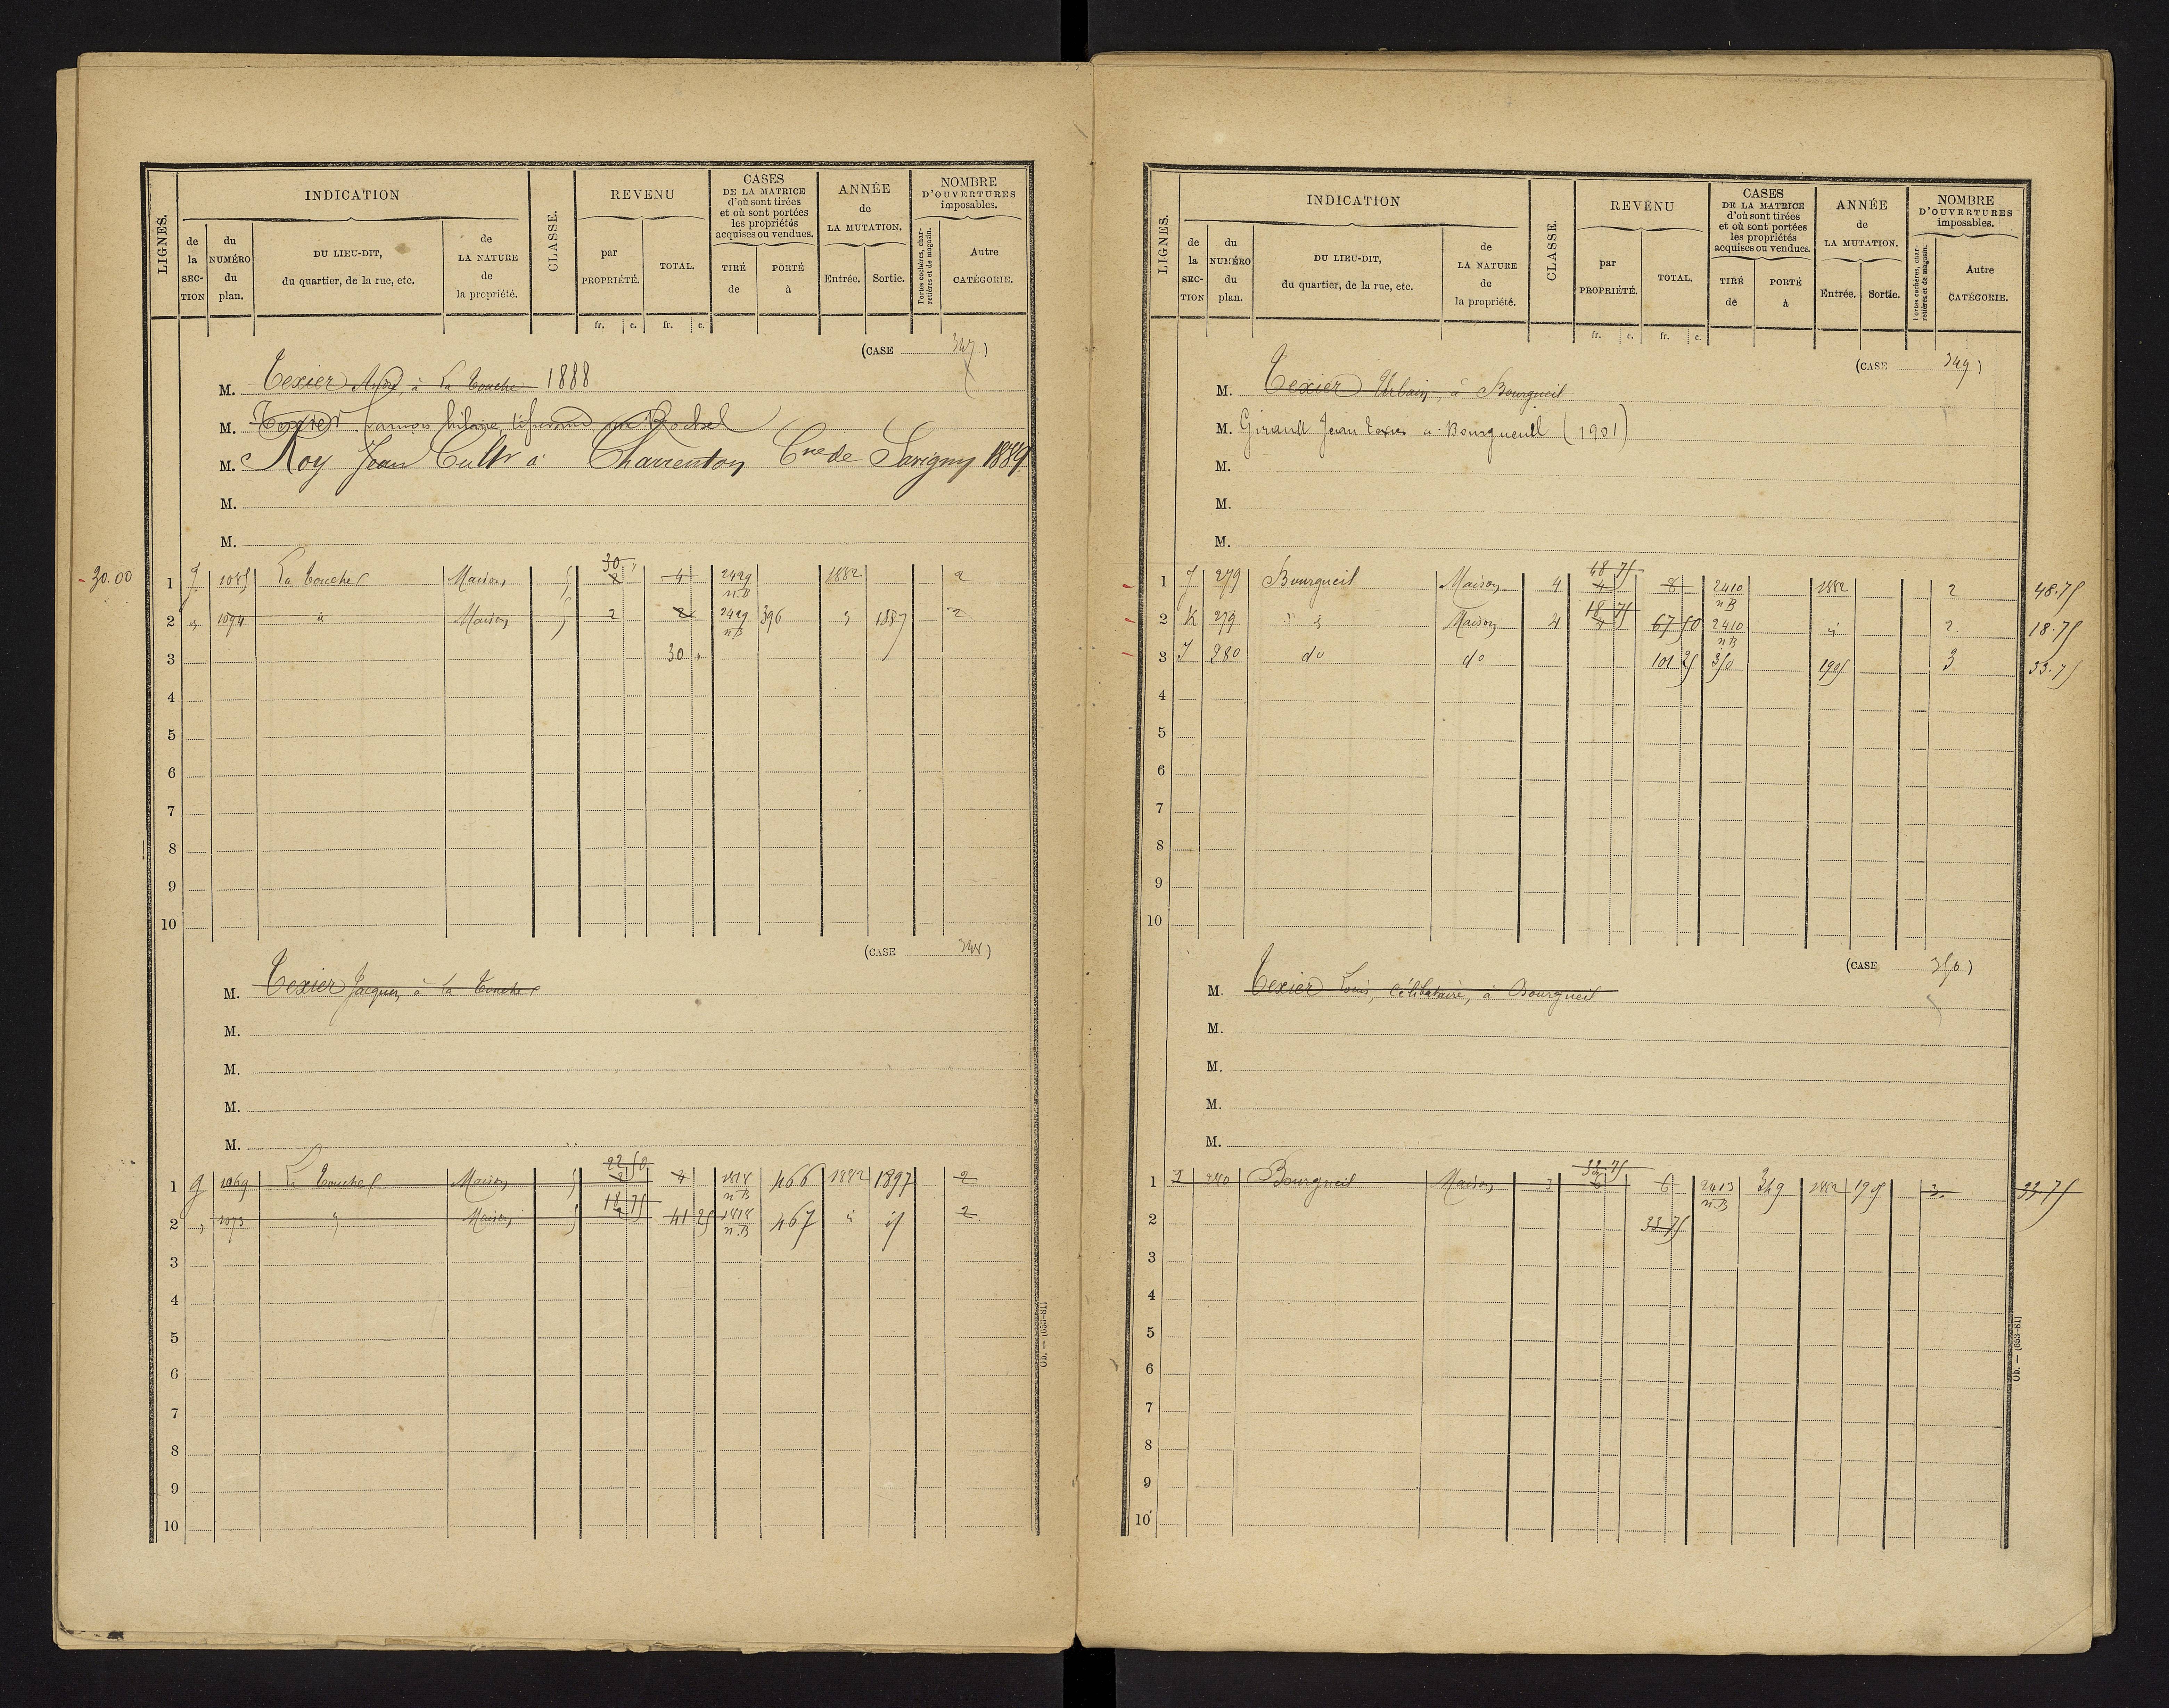 LIGNES.
INDICATION
de la SECTION
du NUMÉRO du plan.
DU LIEU-DIT, du quartier, de la rue, etc.
de LA NATURE de la propriété.
CLASSE.
REVENU
par PROPRIÉTÉ.
TOTAL.
fr. c. fr. c.
CASES DE LA MATRICE d'où sont tirées et où sont portées les propriétés acquises ou vendues.
TIRÉ de
PORTÉ à
ANNÉE de LA MUTATION.
Entrée. Sortie.
NOMBRE D'OUVERTURES imposables.
Portes cochères, charretières et de magasin.
Autre CATÉGORIE.
(CASE 347)
M. Texier André, à La Touche 1888
M. Texier
M. Roy Jean Cultr à Charrenton Cne de Savigny 1889
M.
M.
30.00 1 J 1085 La Touche Maison 5 30 4 2429 n.B 1882 2
2 " 1094 " Maison 5 2 2 2429 n.B 396 " 1887 2
3 30 "
4
5
6
7
8
9
10
(CASE 348)
M. Texier Jacques, à La Touche
M.
M.
M.
M.
1 J 1069 La Touche Maison 5 22 50 2 4 1818 n.B 466 1882 1897 2
2 " 1073 " Maison 5 18 75 2 41 25 1818 n.B 467 " " 2
3
4
5
6
7
8
9
10
Ob. — (653-81)
LIGNES.
INDICATION
de la SECTION
du NUMÉRO du plan.
DU LIEU-DIT, du quartier, de la rue, etc.
de LA NATURE de la propriété.
CLASSE.
REVENU
par PROPRIÉTÉ.
TOTAL.
fr. c. fr. c.
CASES DE LA MATRICE d'où sont tirées et où sont portées les propriétés acquises ou vendues.
TIRÉ de
PORTÉ à
ANNÉE de LA MUTATION.
Entrée. Sortie.
NOMBRE D'OUVERTURES imposables.
Portes cochères, charretières et de magasin.
Autre CATÉGORIE.
(CASE 349)
M. Texier Urbain, à Bourgueil
M. Girault Jean Texier à Bourgueuil (1901)
M.
M.
M.
1 J 279 Bourgueil Maison 4 48 75 4 8 2410 n.B 1882 2 48.75
2 K 279 " " Maison 4 18 75 4 67 50 2410 n.B " 2 18.75
3 J 280 do do 101 25 350 1905 3 33.75
4
5
6
7
8
9
10
(CASE 350)
M. Texier Louis, célibataire, à Bourgueil
M.
M.
M.
M.
1 J 280 Bourgueil Maison 3 33.75 6 6 2413 n.B 349 1882 1905 3. 33.75
2 33 75
3
4
5
6
7
8
9
10
Ob. — (653-81)